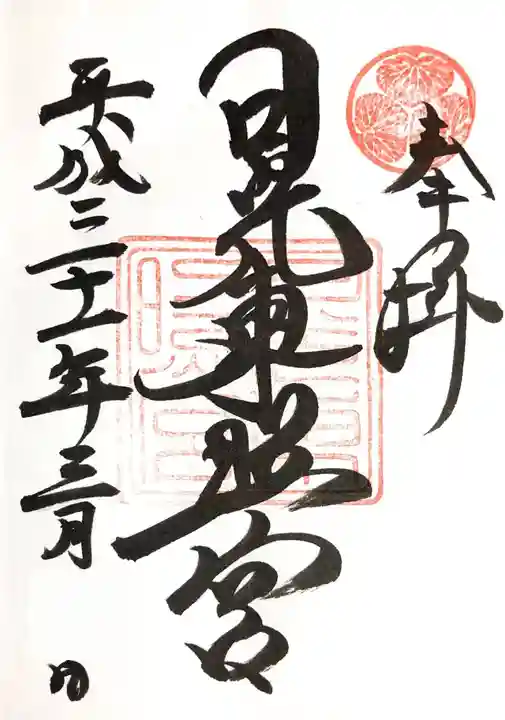 奉拝
日光東照宮
平成二十一年三月
日